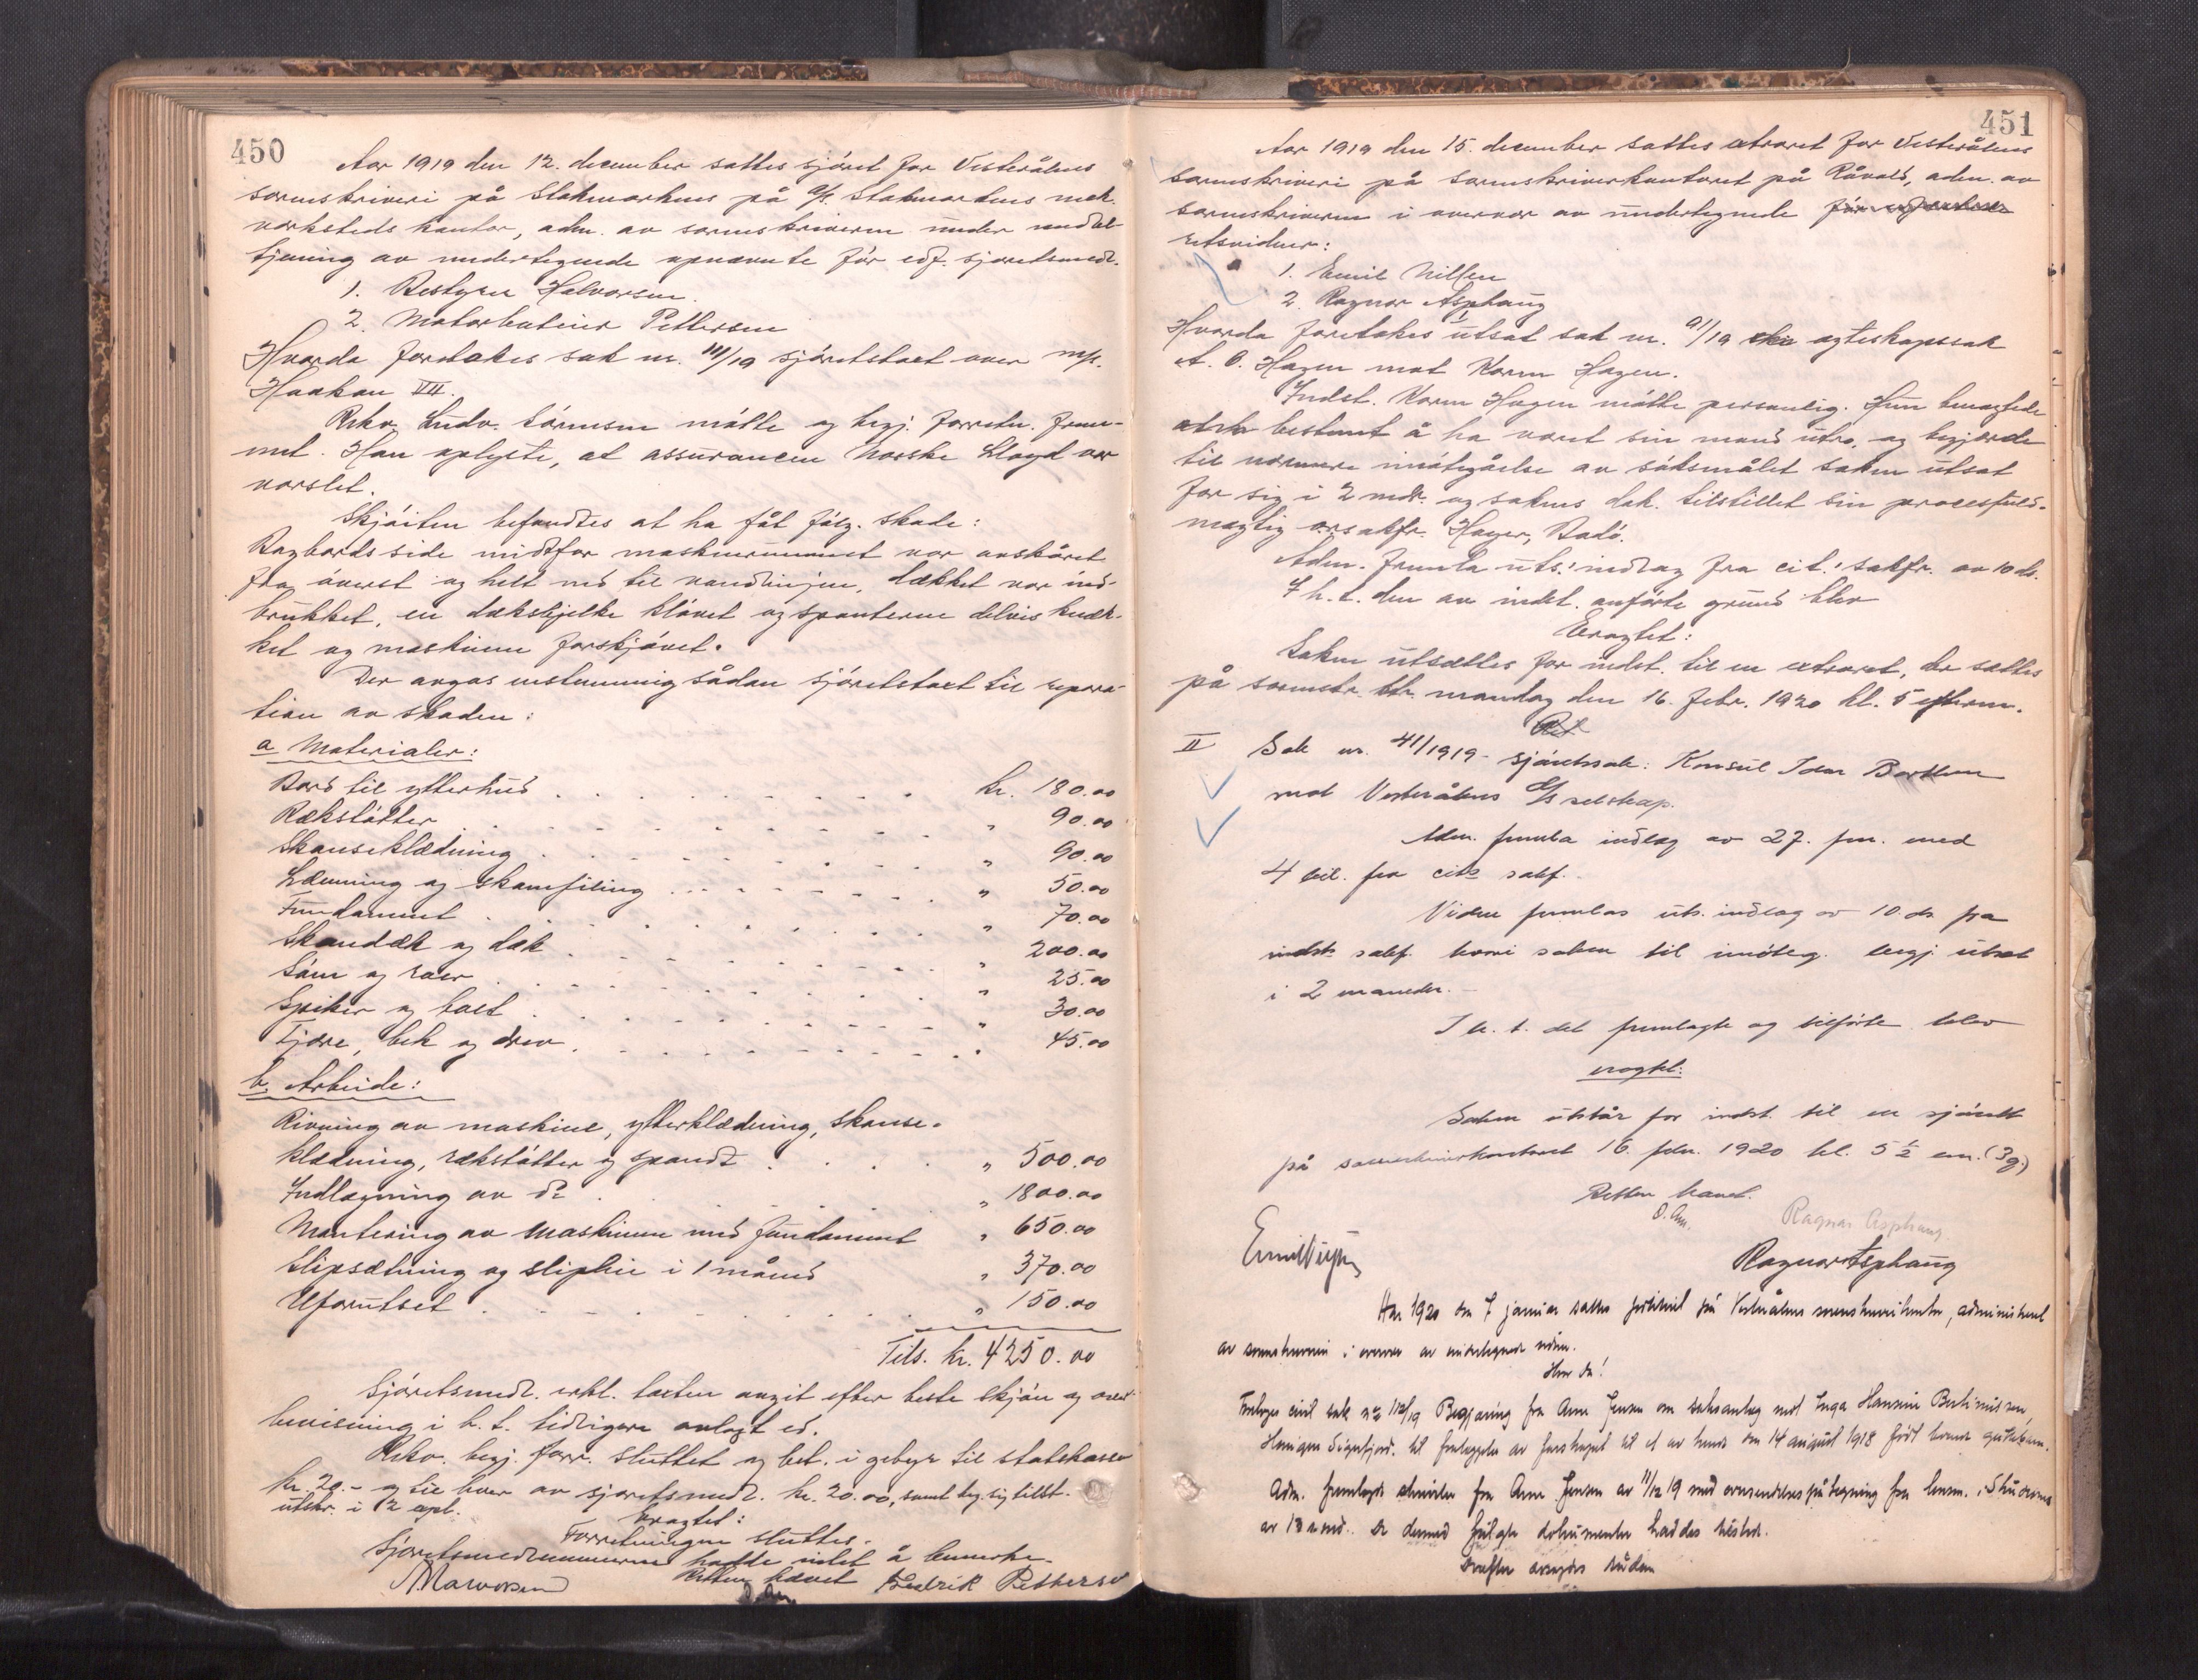 450
Aar 1919 den 12. december sattes sjöret for Vesterålens
sorenskriveri på Stokmarknes på A/S. Stokmarknes mek.
verksteds kontor, adm. av sorenskriveren under meddel-
tjening av undertegnede opnævnte för edf. sjöretsmedl.
1. Bestyrer Halvorsen.
2. Motorbetjener Pettersen
Hvorda foretokes sak nr. 111/19 sjöretstaxt over m/k.
Haakon VII.
Rekv. Ludv. Sörensen mötte og begj. forretn. frem-
met. Han oplyste, at assurancen Norske Lloyd var
varslet.
Skjöiten befandtes at ha fåt fölg. skade:
Bagbords side midtfor maskinrummet var avskåret
fra överst og helt ned til vandlinjen, dækket var ned-
brukket, en dæksbjelke klövet og spanterne delvis knæk-
ket og maskinen forskjövet.
Der avgas enstemmig sådan sjöretstaxt til repara-
tion av skaden:
a Materialer:
Bord til ytterhud . . . . . kr. 180.00
Rækstötter . . . . . " 90.00
Skanseklædning . . . . . " 90.00
Lænning og skamfiling . . . . . " 50.00
Fundament . . . . . " 70.00
Skandæk og dæk . . . . . " 200.00
Söm og roer . . . . . " 25.00
Spiker og bolt . . . . . " 30.00
Tjære, bek og drev . . . . . " 45.00
b. Arbeide:
Rivning av maskine, ytterklædning, skanse-
klædning, rækstötter og spandt . . . . " 500.00
Indlægning av do . . . . " 1800.00
Montering av maskinen med fundament " 650.00
Slipsætning og slipleie i 1 måned " 370.00
Uforutset . . . . . " 150.00
Tils. kr. 4250.00
Sjöretsmedl. erkl. taxten avgit efter beste skjön og over-
bevisning i h. t. tidligere avlagt ed.
Rekv. begj. forr. sluttet og bet. i gebyr til statskassen
kr. 20.- og til hver av sjöretsmedl. kr. 20.00, samt beg. sig tilst.
utskr. i 2 expl.
Eragtet:
Forretningen sluttes.
Sjöretsmedlemmerne hadde intet å bemerke.
Retten hævet
Halvorsen Fredrik Petterse
451
Aar 1919 den 15. december sattes extraret for Vesterålens
sorenskriveri på sorenskriverkontoret på adm. av
sorenskriveren i overvær av undertegnede
retsvidner:
1. Emil Nilsen
2. Ragnar Asphaug
Hvorda foretokes I utsat sak nr. 91/19 egteskapssak
A. O. Hagen mot Karen Hagen.
Indst. Karen Hagen mötte personlig. Hun benægtede
bestemt å ha været sin mand utro, og begjærde
til nærmere imötegåelse av söksmålet saken utsat
for sig i 2 mdr. og sakens dok. tilstillet sin procesfuld-
mægtig o.r.sakfr. Hager, Bodö.
Adm. fremla uts.indlæg fra cit.s sakfr. av 10 ds.
I h. t. den av indst. anförte grund blev
Eragtet:
Saken utsættes for indst. til en extraret, der sættes
på sorenskr. ktr. mandag den 16. febr. 1920 kl. 5 efterm.
II Sak nr. 41/1919 - sjöretssak: Konsul Idar Borthen
mot Vesterålens D/S selskap.
Adm. fremla indlæg av 27. f.m. med
4 bil. fra cits sakf.
Videre fremlas uts. indlæg av 10. ds. fra
indsts sakf. hvori saken til imöteg. begj. utsat
i 2 maaneder.
I h. t. det fremlagte og tilförte blev
eragtet:
Saken utstår for indst. til en sjöret
på sorenskriverkontoret 16. febr. 1920 kl. 5 1/2 em. (3 g.)
Retten hævet.
Ragnar Asphaug.
Emil Nilsen Ragnar Asphaug
Aar 1920 den 7 januar sattes på Vesterålens sorenskriverikontor, administreret
av sorenskriveren i overvær av undertegnede vidner.
Hvor da!
Foretoges civil sak no 112/19 Begjæring fra Arne Jensen om saksanlæg mot Inga Hansine Bertinussen,
Sigerfjord. til fralæggelse av farskapet til et av hende den 14 august 1918 födt barn.
Adm. fremlagde skrivelse fra Arne Jensen av 11/12 19 med oversendelsespåtegning fra lensm. i
av 18 s.md. De dermed fulgte dokumenter
Derefter avsagdes sådan